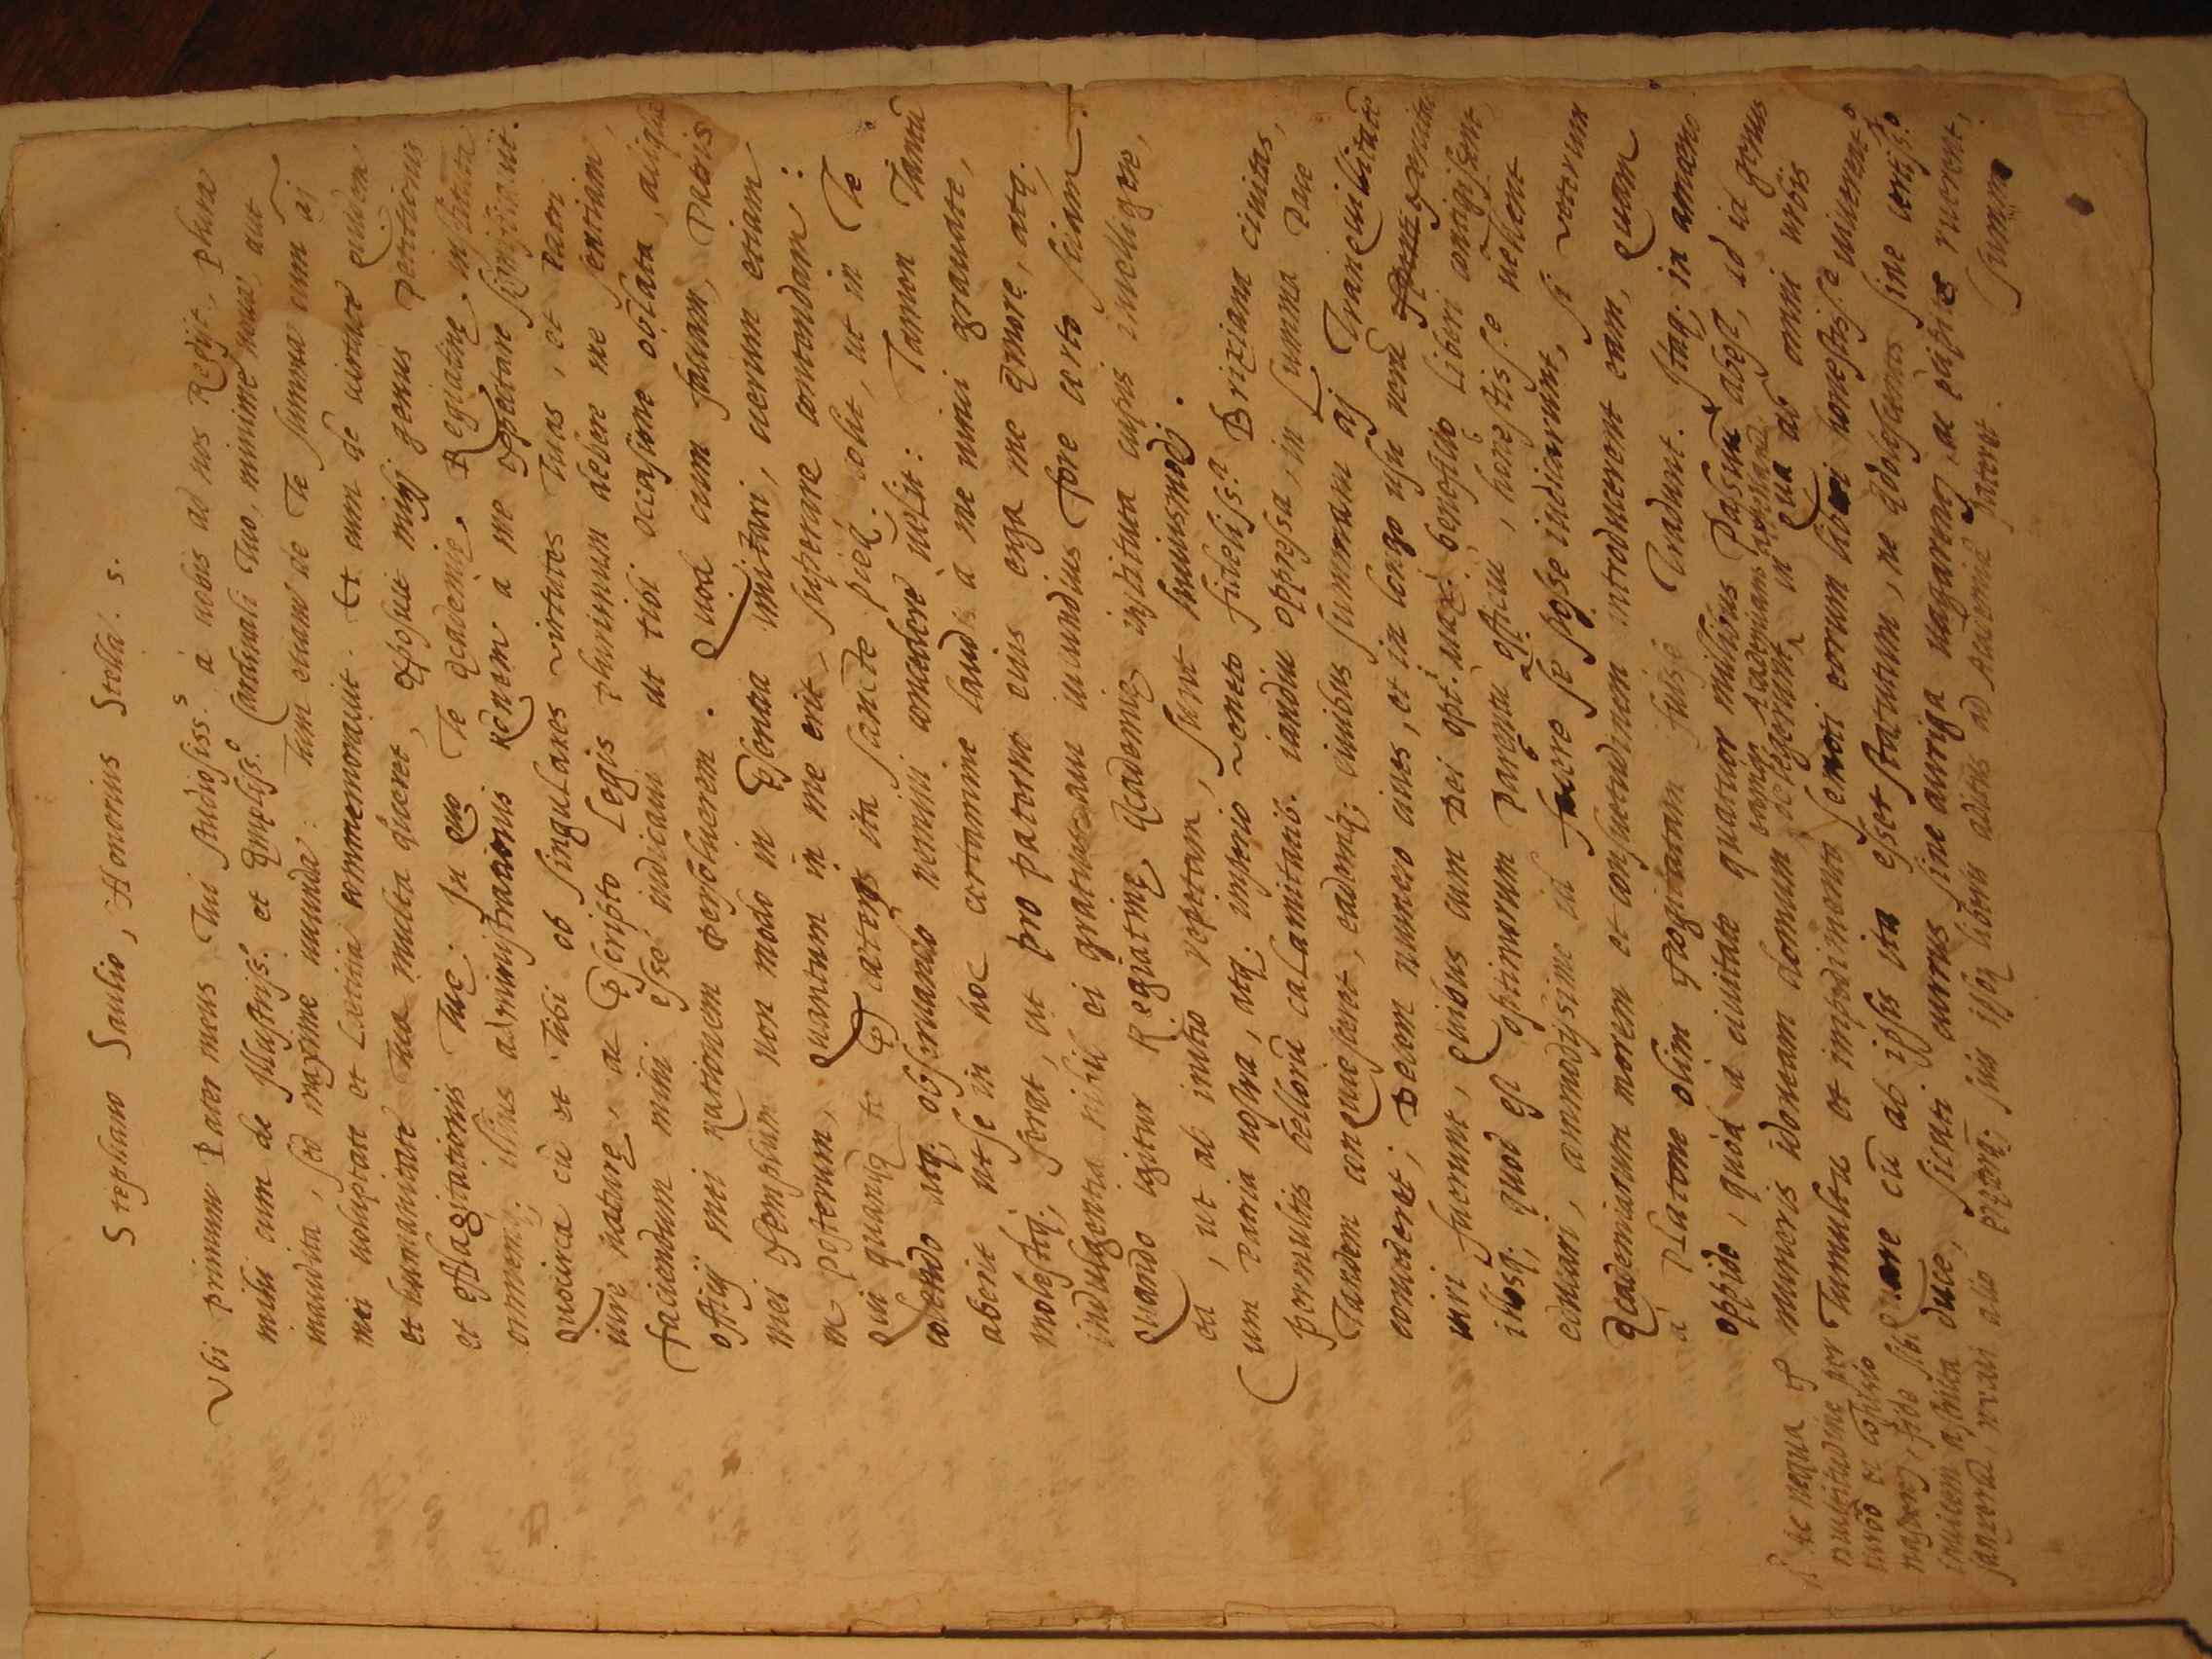 Stephano Saulio, Honorius Stella. s.
Ubi primum Pater meus Tui studiosiss.s à uobis ad nos Redijt, Plura
mihi cum de Illustriss.o et Ampliss.o Cardinali Tuo, minime noua, aut
inaudita, sed maxime iucunda: tum etiam de Te summa cum aĩ
mei uoluptate et Lætitia commemorauit. Et cum de uirtute quidem
et humanitate Tua multa diceret, exposuit mihi genus Petitionis
et efflagitationis Tuę. In quo Te Academię Regiatinę instituta
omnemq; illius administrationis Rõnem a me expectare significauit.
Quocirca cũ et Tibi ob singulares virtutes Tuas, et Patri
iure naturę, ac Pscripto Legis plurimum debere me sentiam,
faciendum mihi esse iudicaui ut tibi occasione oblata, aliquã
officij mei rationem persoluerem. Quod cum faciam, Patris
mei exemplum non modo in Psona imitari, uerum etiam
in posterum, quantum in me erit superare contendam:
Qui quanq te P cæteris ita sancte pieq; colit, ut in Te
colendo atq; obseruando nemini concedere uelit: Tamen Tantũ
aberit ut se in hoc certamine laudis a me uinci grauate,
molesteq; ferat, ut pro paterno eius erga me Amore, atq;
indulgentia nihil ei gratius aut iucundius fore certo sciam.
Quando igitur Regiatinę Academię instituta cupis intelligere,
ea, ut ab initio repetam, sunt huiusmodj.
Cum Patria nostra, atq; imperio Veneto fideliss.a Brixiana ciuitas,
permultis bellorũ calamitatib. iandiu oppressa, in summa Pace
Tandem conquiesceret, eademq; ciuibus summam aĩ Tranquilitatẽ
comoderet; Decem numero ciues, et in longo usu rerũ
uiri fuerunt, quibus cum Dei opt. max. beneficio Liberi contigissent,
illosq; quod est optimorum Parentũ officiũ, honestiss.e uellent
educari, commodissime id facere se posse iudicarunt, si veterum
Academiarum morem et consuetudinem introducerent eam, quam
à Platone olim excogitatam fuisse Tradunt. Itaq; in amœno
oppido, quod a ciuitate quatuor millibus Passuũ abest, ad id genus
muneris idoneam domum delegerunt in qua ab omni urbis
Tumultu et impedimento semoti eorum liberi honestiss.e uiuerent
Quare cũ ab ipsis ita esset statutum, ne Adolescentes sine certiss.o
duce, sicuti currus sine auriga uagarentʳ, ac ruerent,
summa